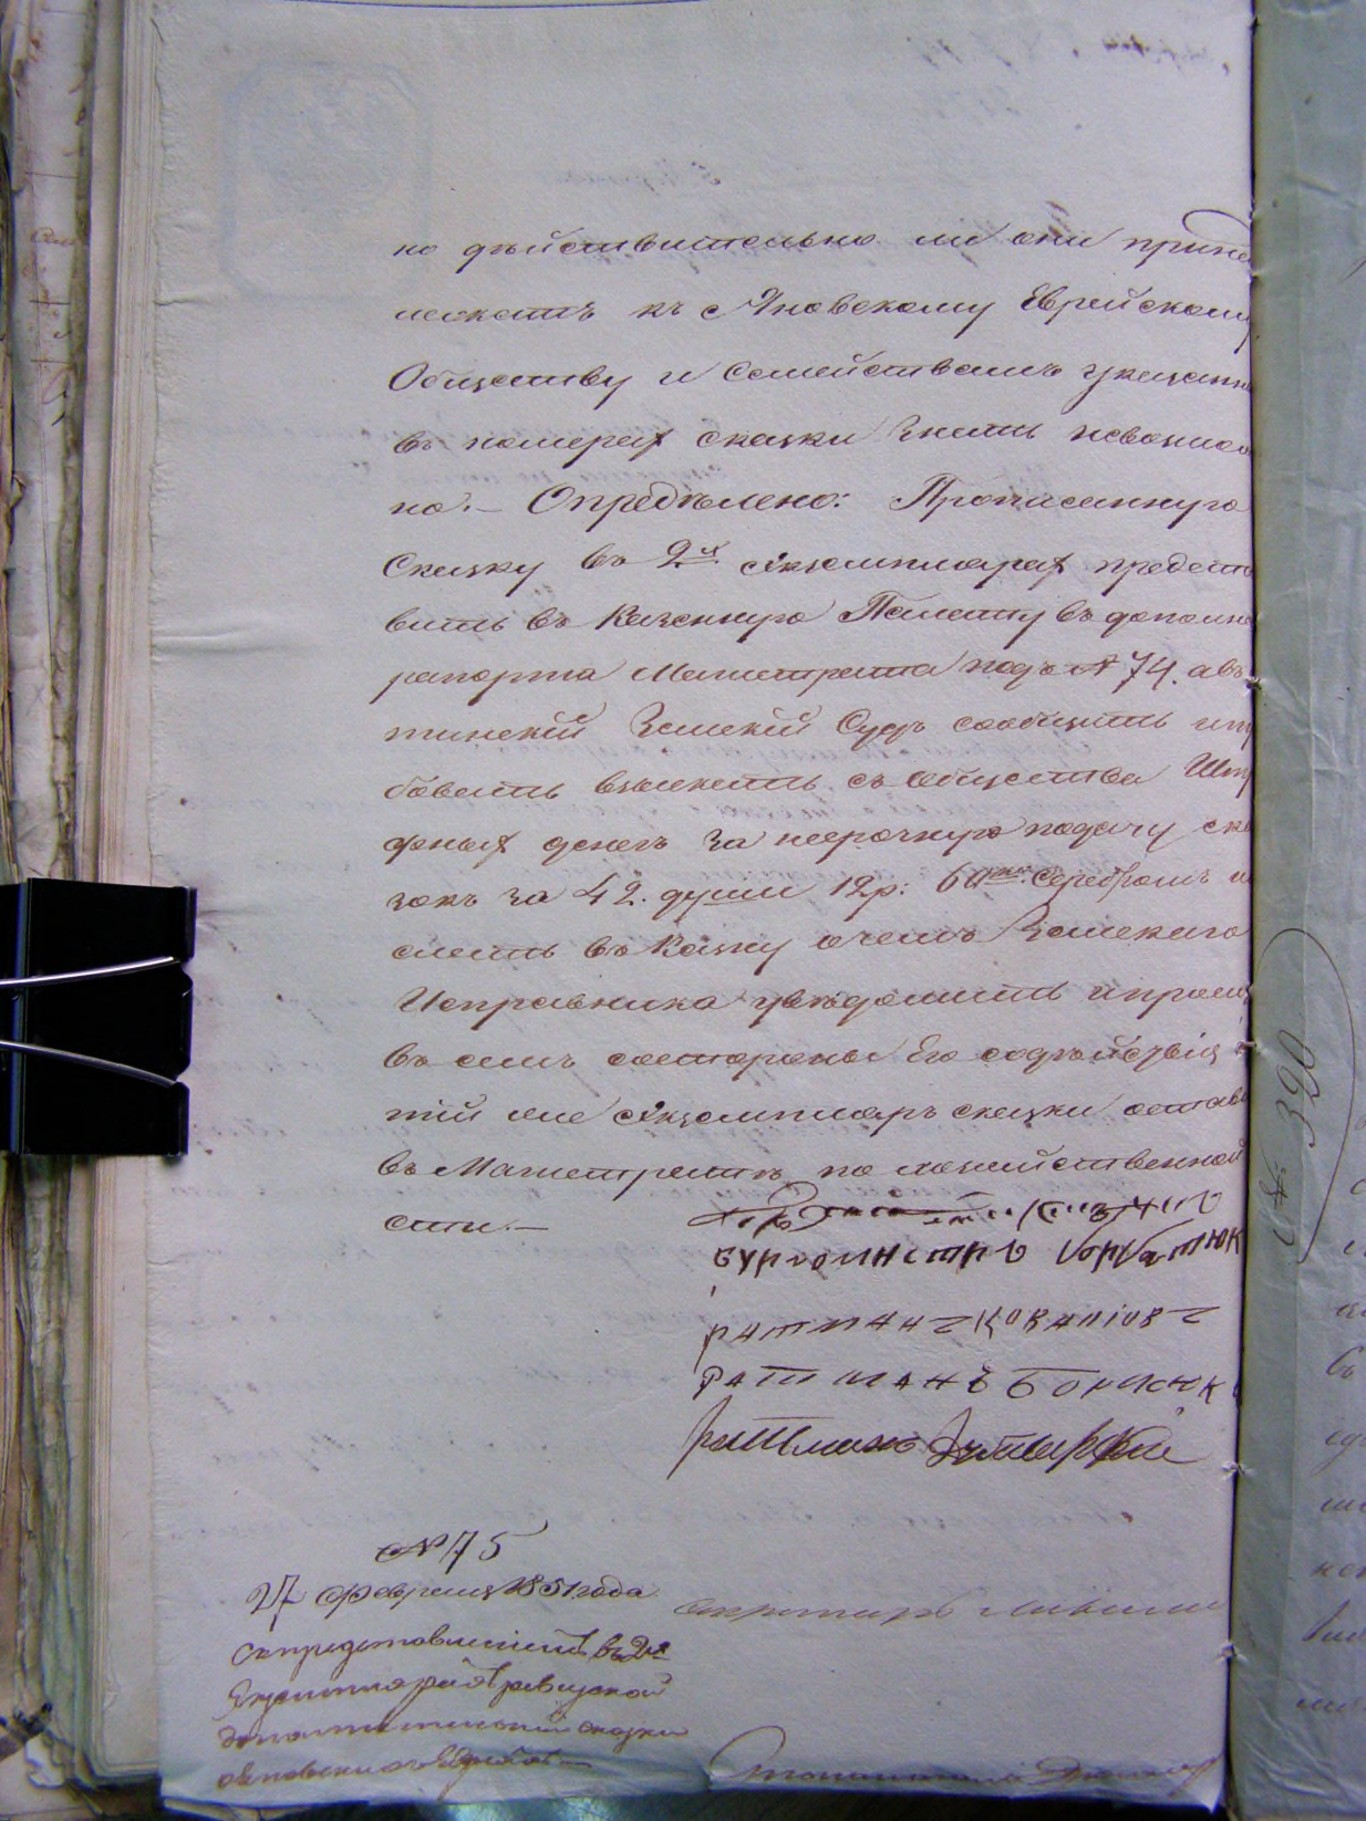 но дѣйствительно ли они прина
лежатъ къ Яновскому Еврейскому
Обществу и Семействамъ указанн
въ номерах сказки Знать невозмож
но. — Опредѣлено: Прописанную
Сказку въ 2х Экземплярах предста
вить въ Казенную Палату въ дополне
рапорта Магистрата подъ № 74. а въ
тинскій Земскій Судъ сообщить и тр
бовать взыскать съ общества Штр
фных денегъ за несрочную подачу ска
зокъ за 42. души 12 р: 60 коп. серебромъ и
слать въ Казну о чемъ Земскаго
Исправника увѣдомить и просить
въ семъ состороны Его содѣйствія
тій же Экземпляръ сказки остави
въ Магистратѣ по хозяйственной
сти. —
Бургомистръ Горбатюк
ратманъ Коваліовъ
ратманъ Борисюк
ратманъ
№ 75
27 Февраля 1851 года
съ представленіемъ въ 2х
Экземплярах ревизской
дополнительной сказки
Яновских Евреев —
Секретарь
№ 320